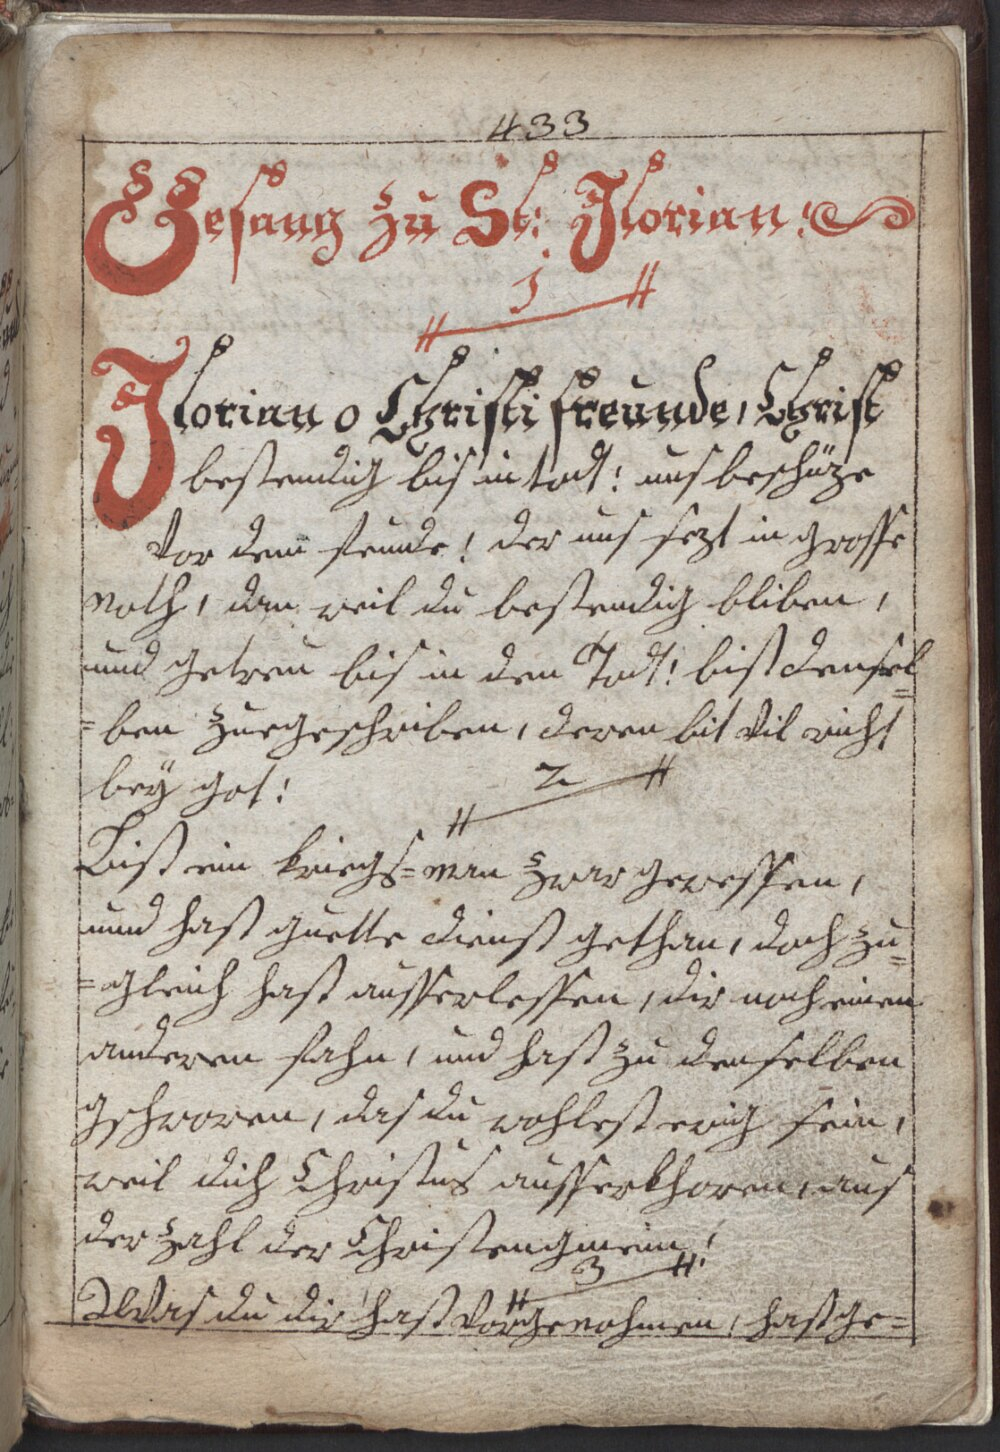 433
Gesang zu St: Florian:
1
Florian o Christi freunde, Christ
bestendig bis in todt: uns beschüze
vor dem feunde! der uns sezt in grosse
noth, dan weil du bestendig bliben,
und getreu bis in den Todt: bist densel=
=ben zuegeschriben, deren bit vil richt
bey got:
2
Bist ein kriegs=man zwar gewessen,
und hast guette dienst gethan, doch zu=
=gleich hast ausserlessen, dir noch einen
anderen fahn, und hast zu denselben
gschworen, das du wohlest ewig sein,
weil dich Christus ausserkhoren, aus
der zahl der Christengmein!
3
Was du dir hast vorgenohmen, hast ge=